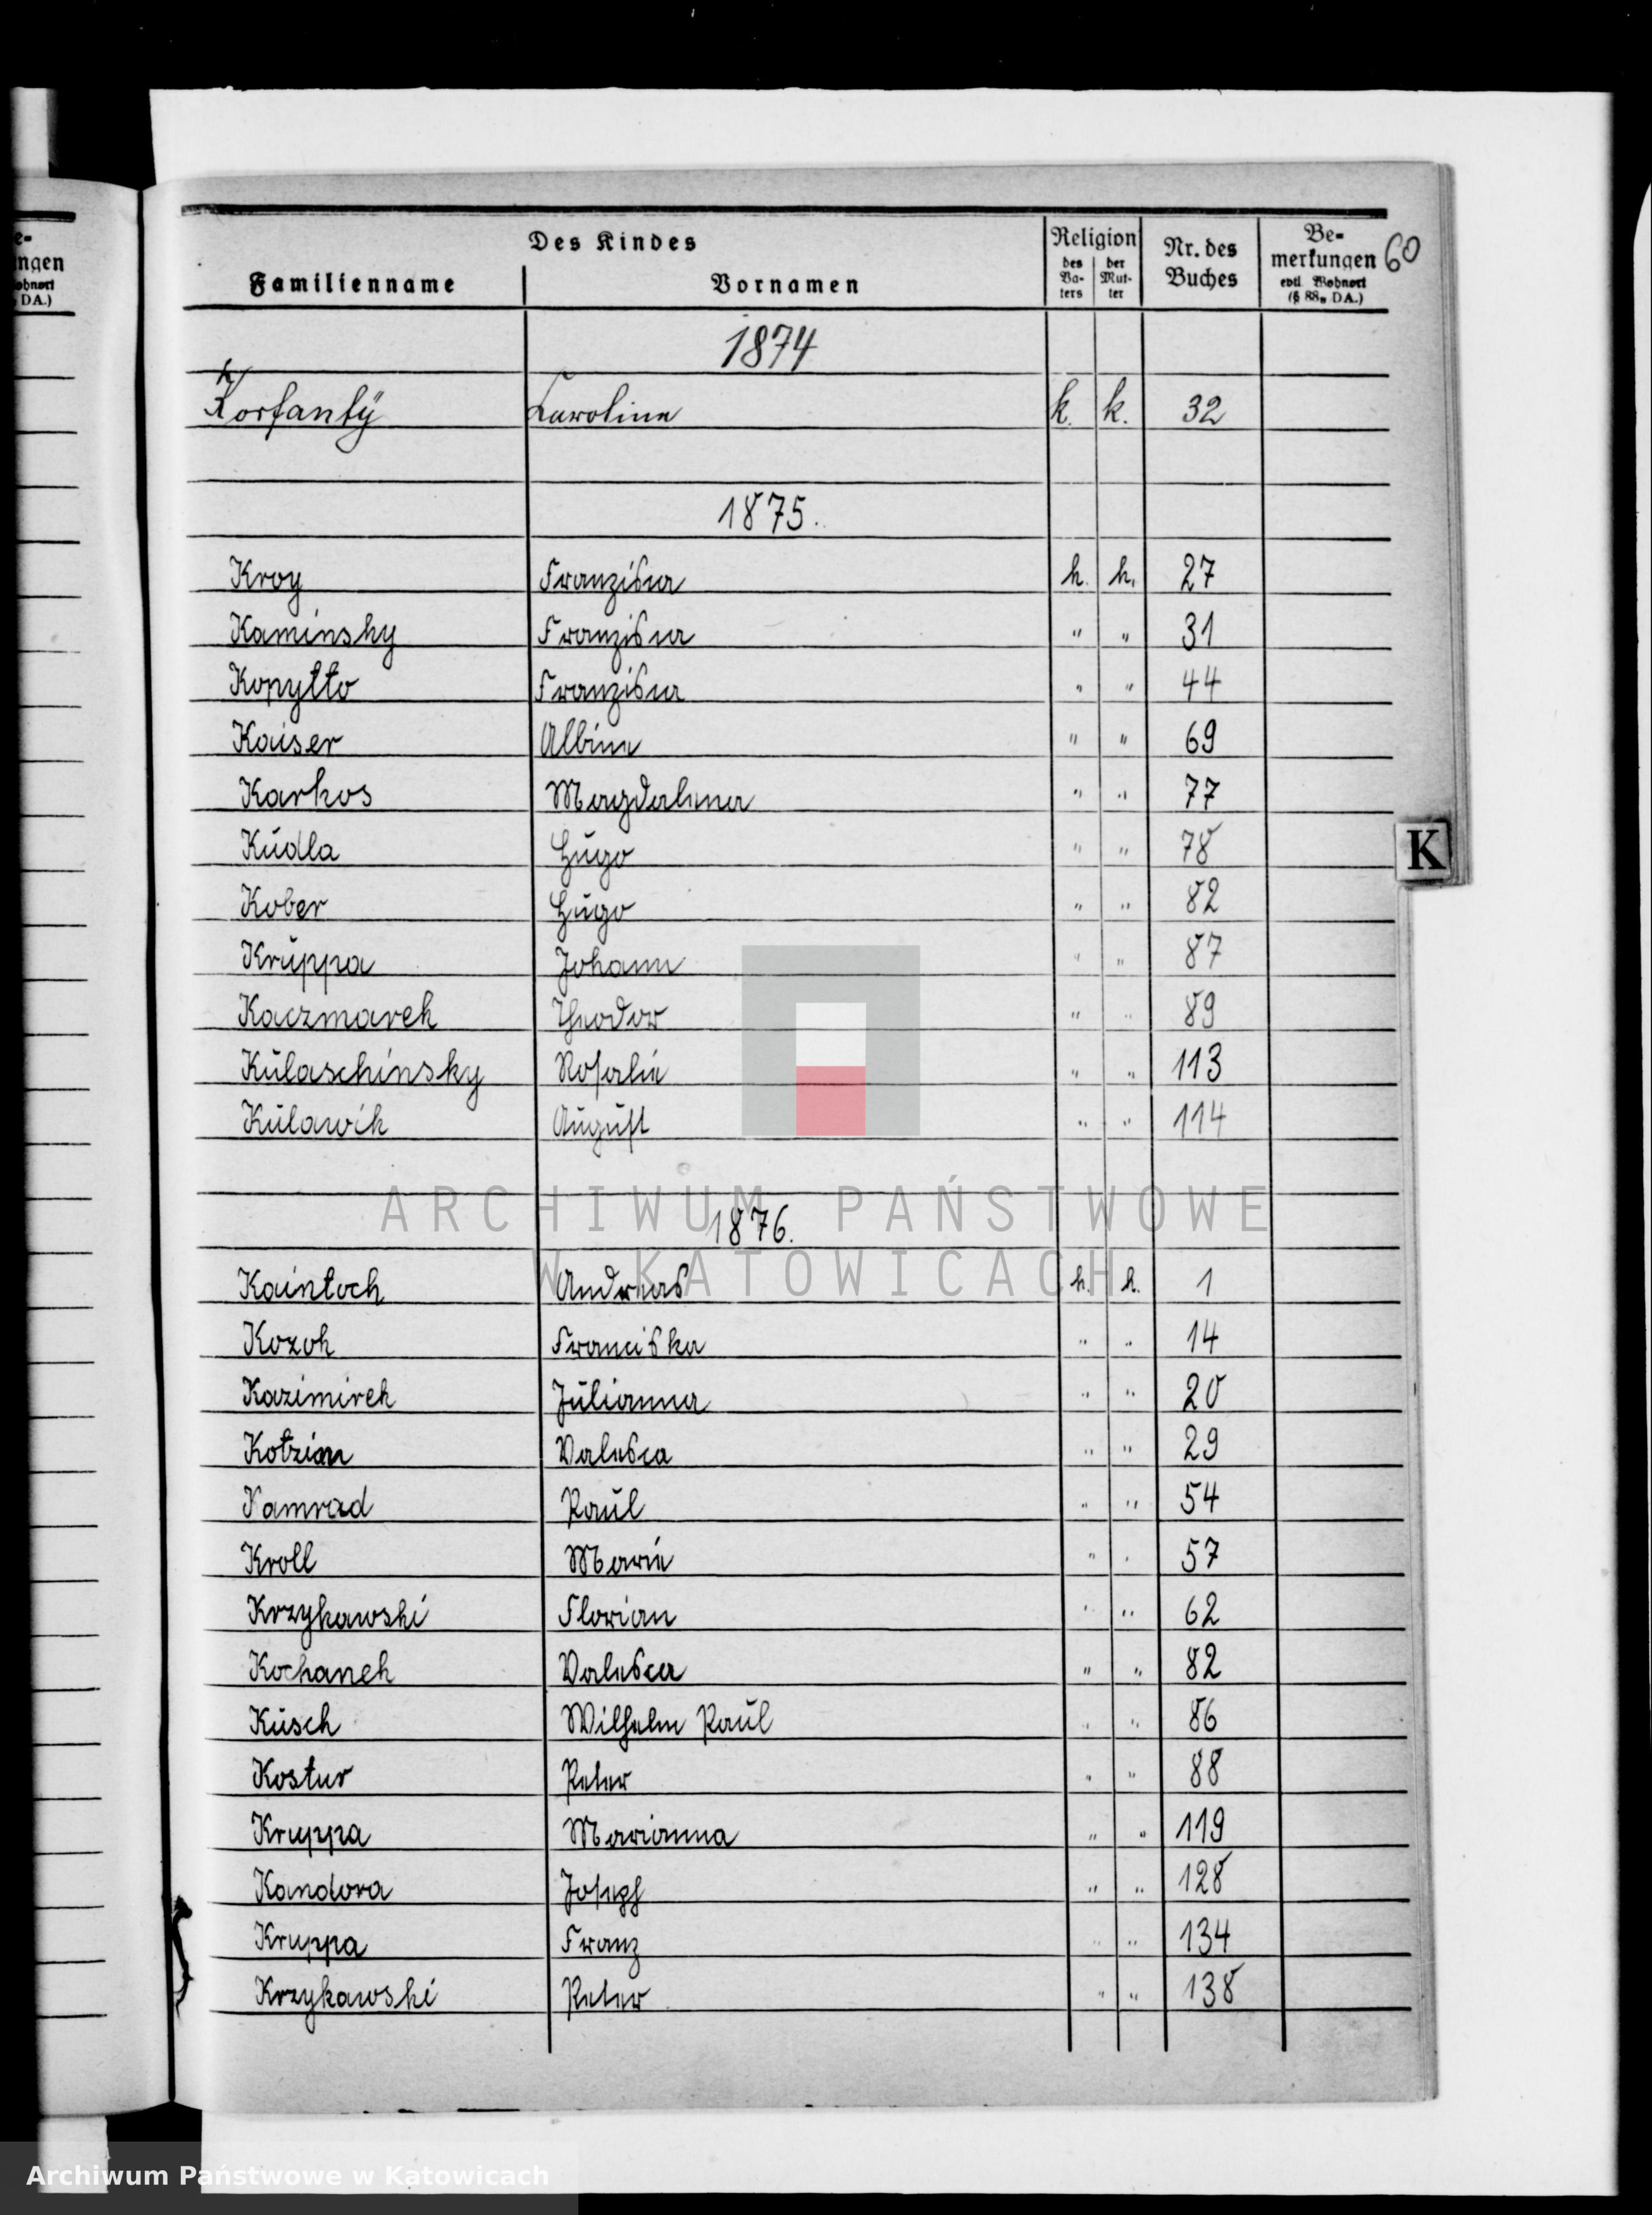 e-
ngen
ohnort
DA.)
Des Kindes
Familienname Vornamen
Religion
des Va-ters der Mut-ter
Nr. des Buches
Be-merkungen
evtl. Wohnort
(§ 88, DA.)
60
1874
K
Korfantÿ Caroline k. k. 32
1875.
Kroy Franziska k. k. 27
Kaminsky Franziska " " 31
Kopytto Franziska " " 44
Kaiser Albine " " 69
Karkos Magdalena " " 77
Kudla Hugo " " 78
K
Kober Hugo " " 82
Kruppa Johann " " 87
Kaczmarek Theodor " " 89
Kulaschinsky Rosalie " " 113
Kulawik August " " 114
ARCHIWUM PAŃSTWOWE
1876.
W KATOWICACH
Kaintoch Andreas k. k. 1
Kozok Franciska " " 14
Kazimirek Julianna " " 20
Kotzian Valesca " " 29
Kamrad Paul " " 54
Kroll Marie " " 57
Krzykawski Florian " " 62
Kochanek Valesca " " 82
Kusch Wilhelm Paul " " 86
Kostur Peter " " 88
Kruppa Marianna " " 119
Kandora Joseph " " 128
Kruppa Franz " " 134
Krzykawski Peter " " 138
Archiwum Państwowe w Katowicach